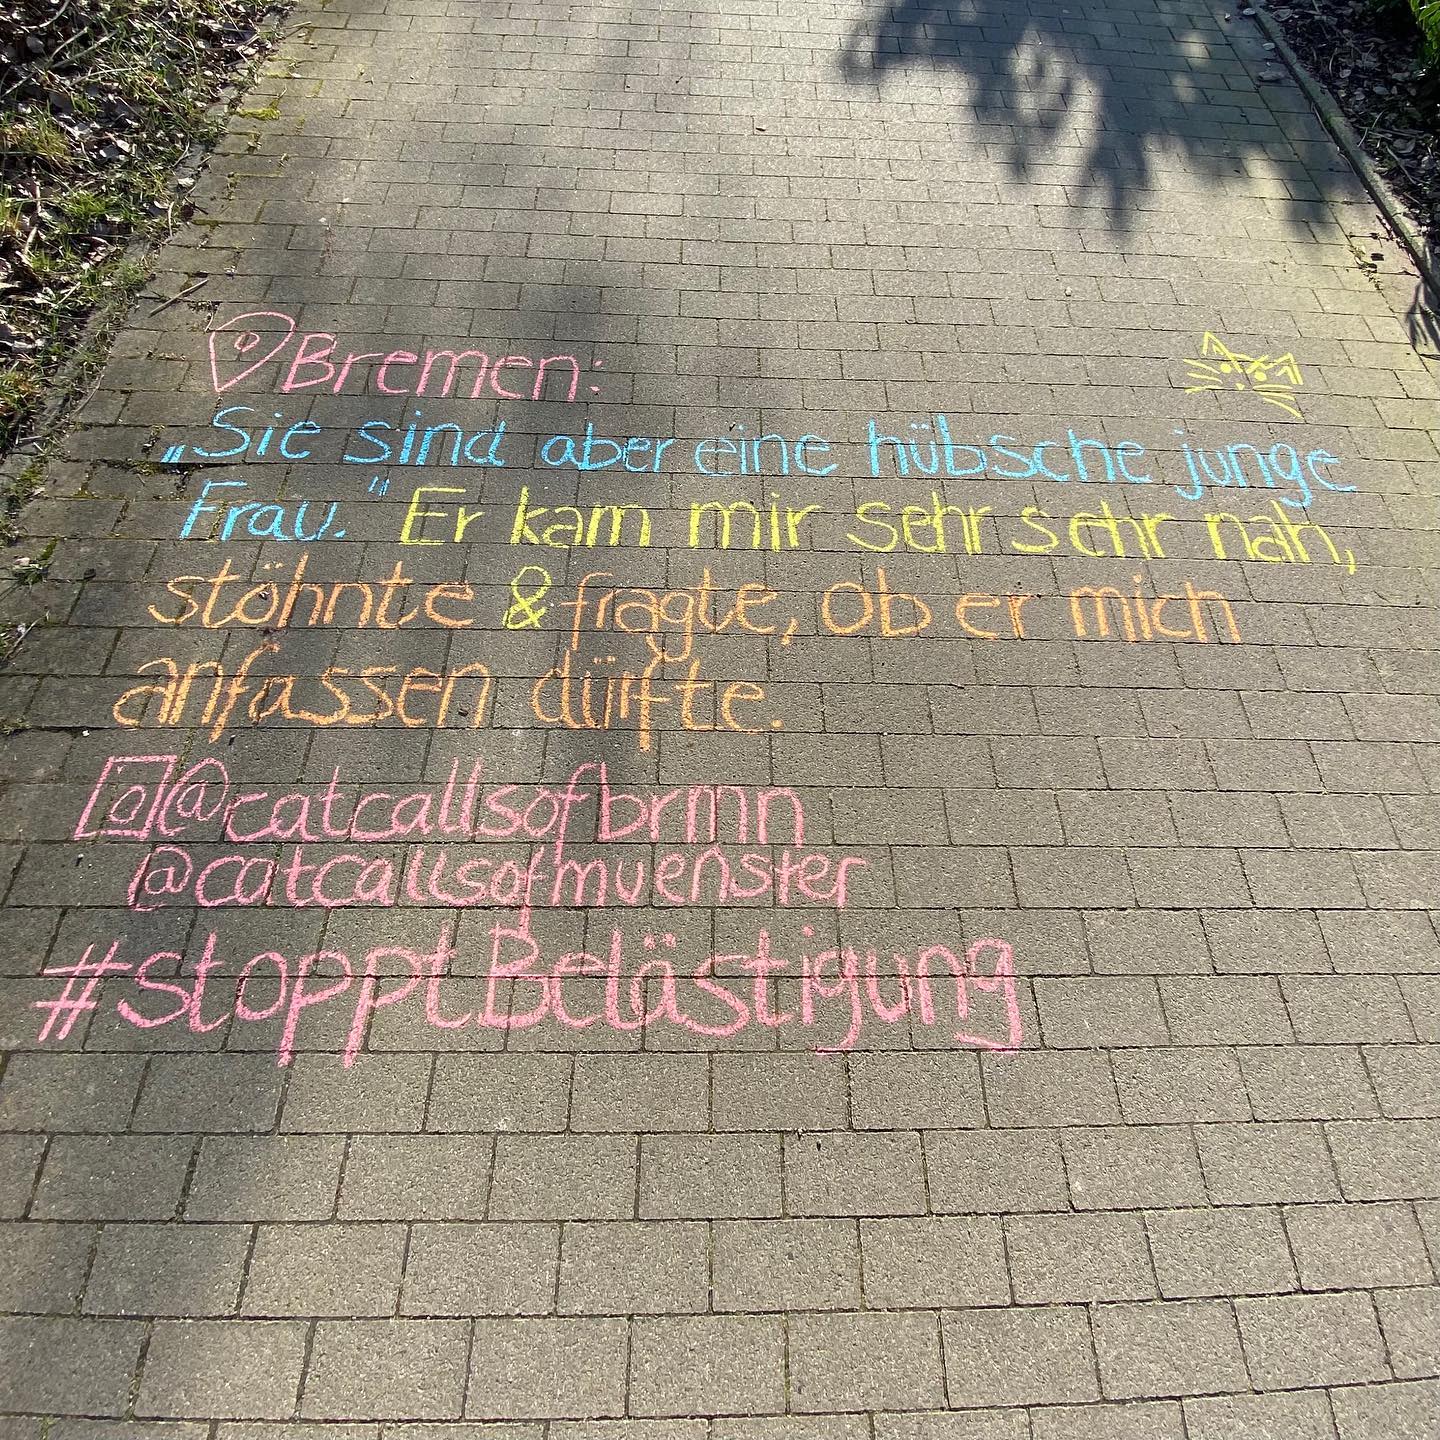 Bremen:
„Sie sind aber eine hübsche junge
Frau." Er kam mir sehr sehr nah,
stöhnte & fragte, ob er mich
anfassen dürfte.
@catcallsofbrmn
@catcallsofmuenster
#stopptBelästigung